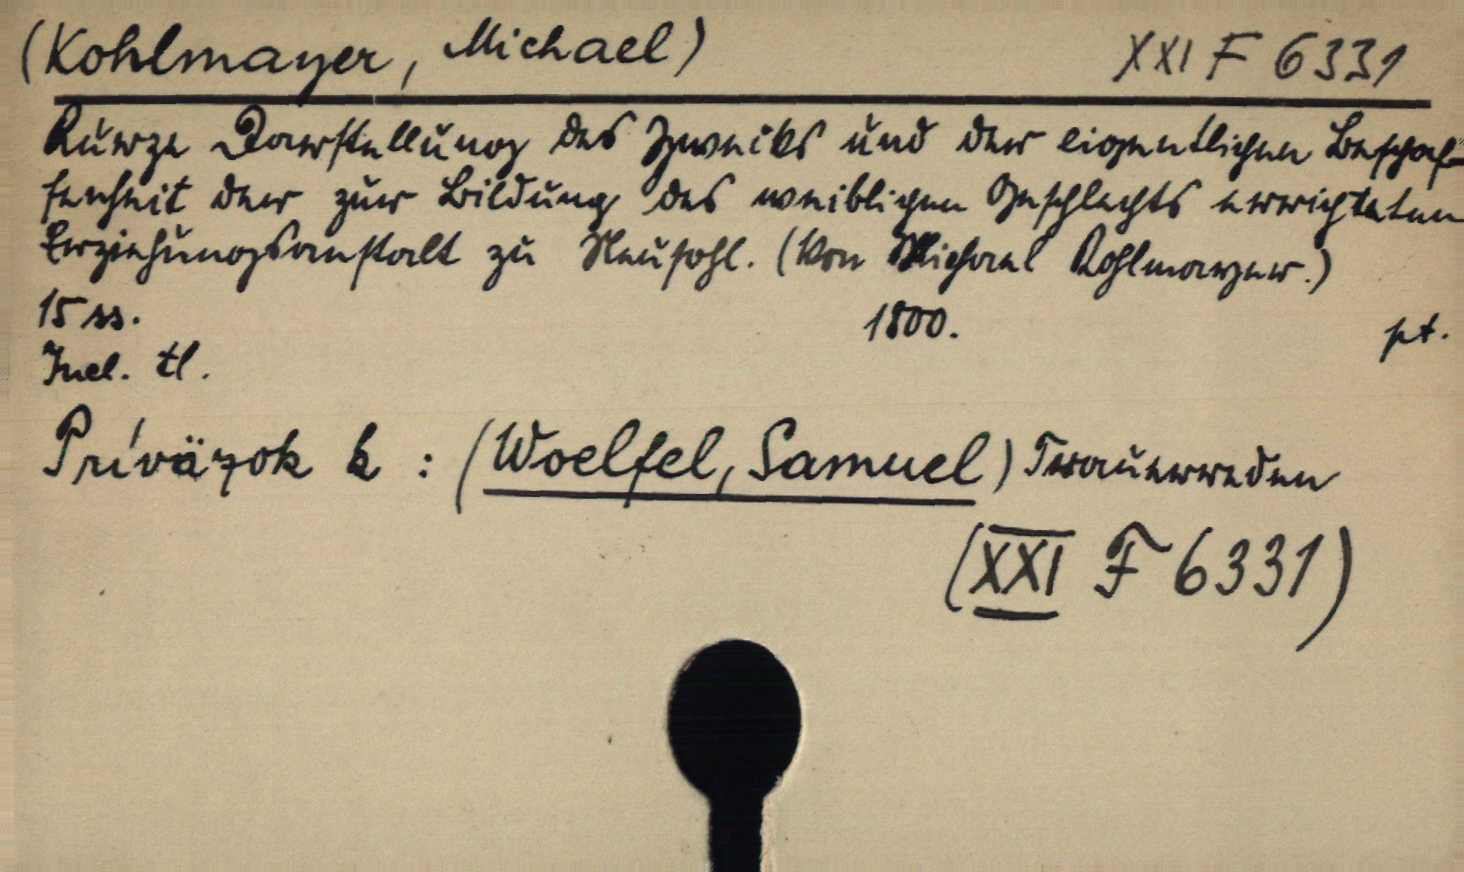 (Kohlmayer, Michael) XXI F 6331
Kurze Darstellung des Zwecks und der eigentlichen Beschaf-
fenheit der zur Bildung des weiblichen Geschlechts errichteten
Erziehungsanstalt zu Neusohl. (Von Michael Kohlmayer.)
15 ss. 1800. pt.
Incl. tl.
Priväzok k : (Woelfel, Samuel) Trauerreden
(XXI F 6331)